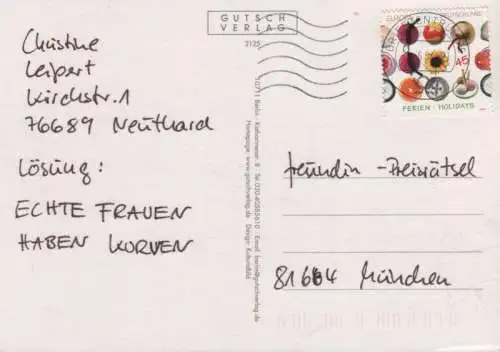 GUTSCH
VERLAG
2125
Christine
Leipert
Kirchstr. 1
76689 Neuthard
Lösung:
ECHTE FRAUEN
HABEN KURVEN
10711 Berlin · Katharinenstr. 8 · Tel. 030-40585610 · Email: berlin@gutschverlag.de
Homepage: www.gutschverlag.de · Design: Kulturbild
EUROPA DEUTSCHLAND
45
FERIEN · HOLIDAYS
freundin - Preisrätsel
81664 München